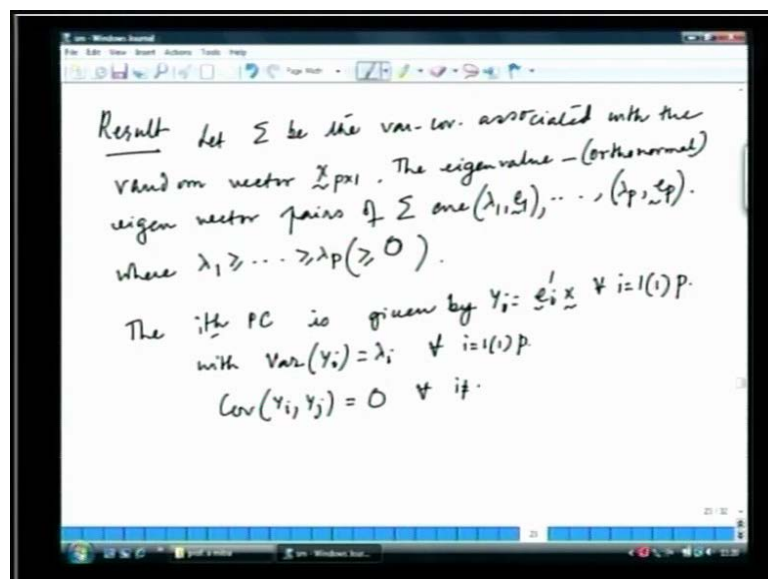 sm - Windows Journal
File Edit View Insert Actions Tools Help
Page Width
Result Let Σ be the var-cov. associated with the
random vector x̰ p×1. The eigenvalue - (orthonormal)
eigen vector pairs of Σ are (λ₁, ḛ₁), ..., (λp, ḛp).
where λ₁ ≥ ... ≥ λp (≥ 0).
The ith PC is given by Yᵢ = ḛᵢ′ x̰ ∀ i=1(1)p.
with Var(Yᵢ) = λᵢ ∀ i=1(1)p.
Cov(Yᵢ, Yⱼ) = 0 ∀ i≠.
23 / 32
23
prof a mitra
sm - Windows Jour...